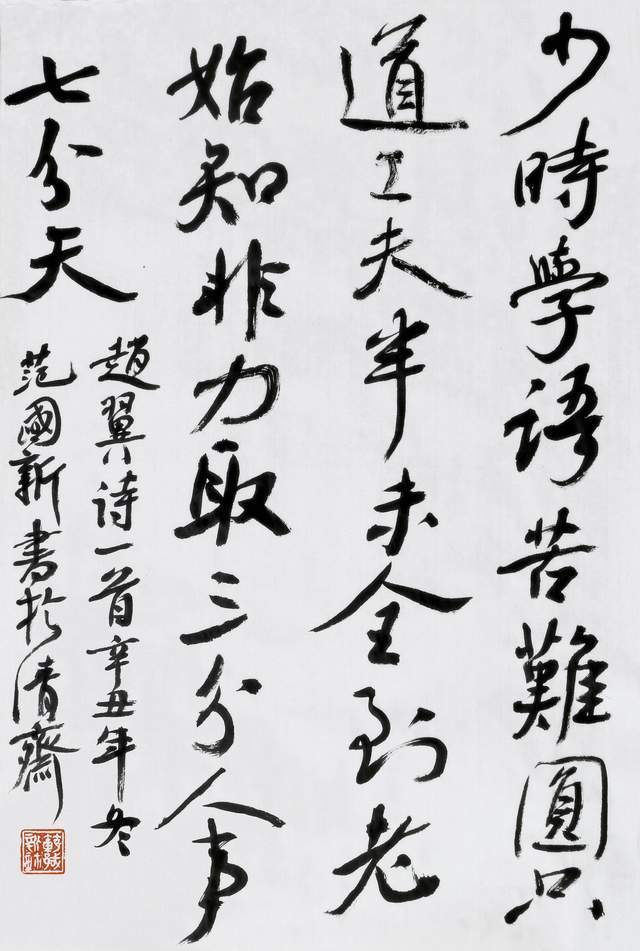 少時學語苦難圓只
道工夫半未全到老
始知非力取三分人事
七分天
趙翼詩一首辛丑年冬
范國新書於清齋